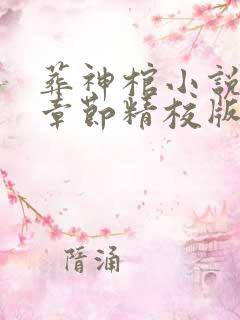 葬神棺小說
章節精校版
隋涌